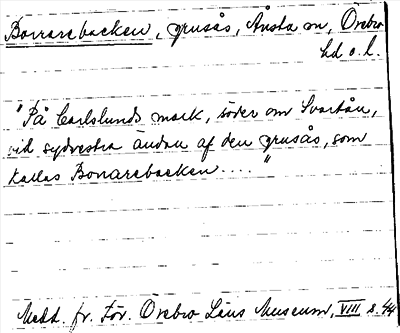 Bonarebacken, grusås, Ånsta sn, Örebro
hd o. l.
"På Carlslunds mark, söder om Svartån,
vid sydvestra ändan af den grusås, som
kallas Bonarebacken...."
Medd. fr. För. Örebro Läns Museum, VIII s. 44